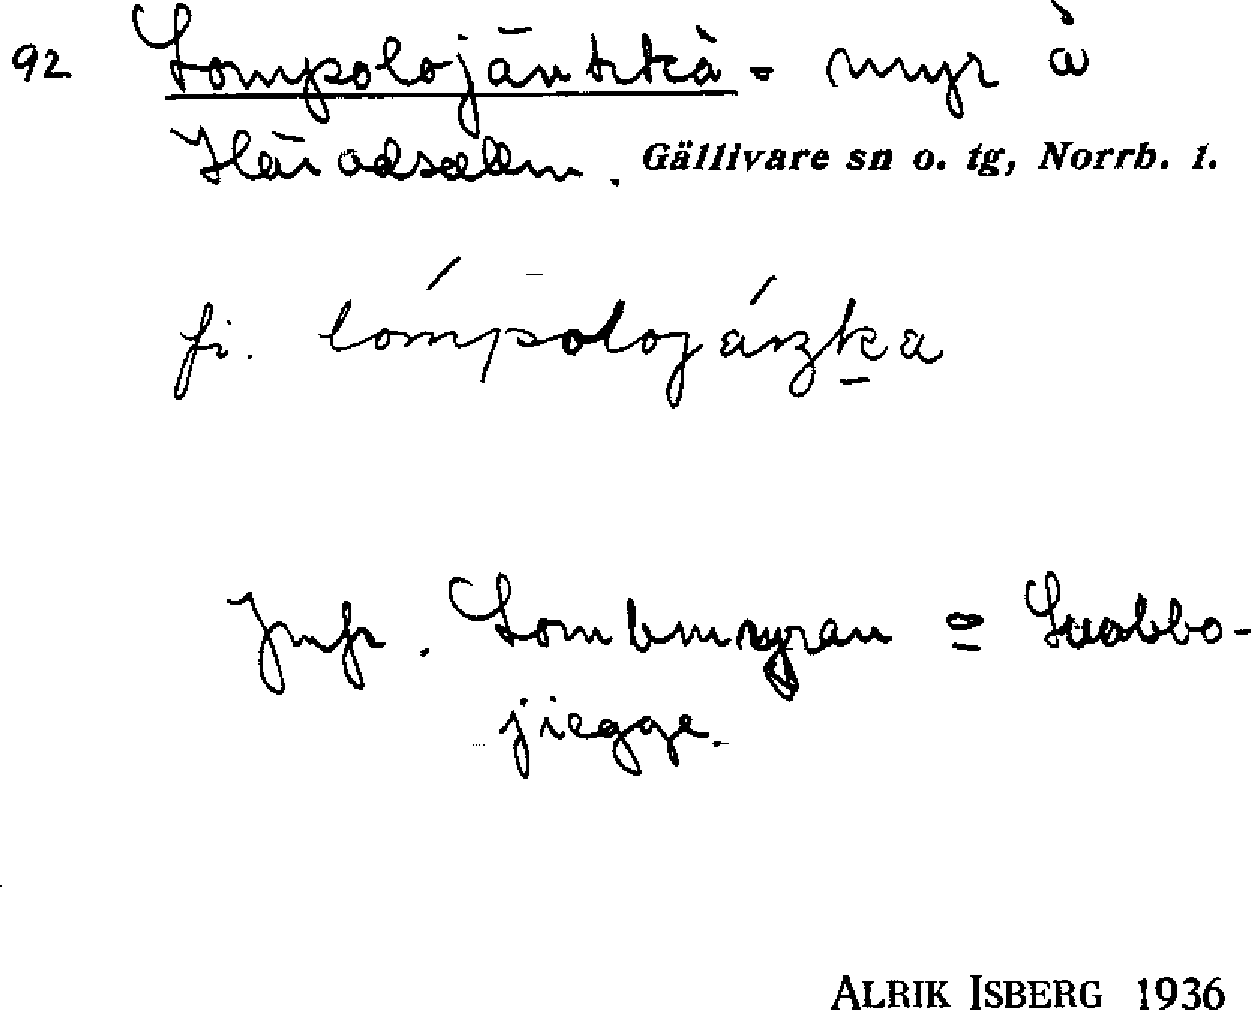 92 Lompolojänkkä = myr å
Häradsallm. Gällivare sn o. tg, Norrb. l.
fi. lómpolojáŋka
Jmfr. Lombmyran = Luobbo-
jiegge.
ALRIK ISBERG 1936